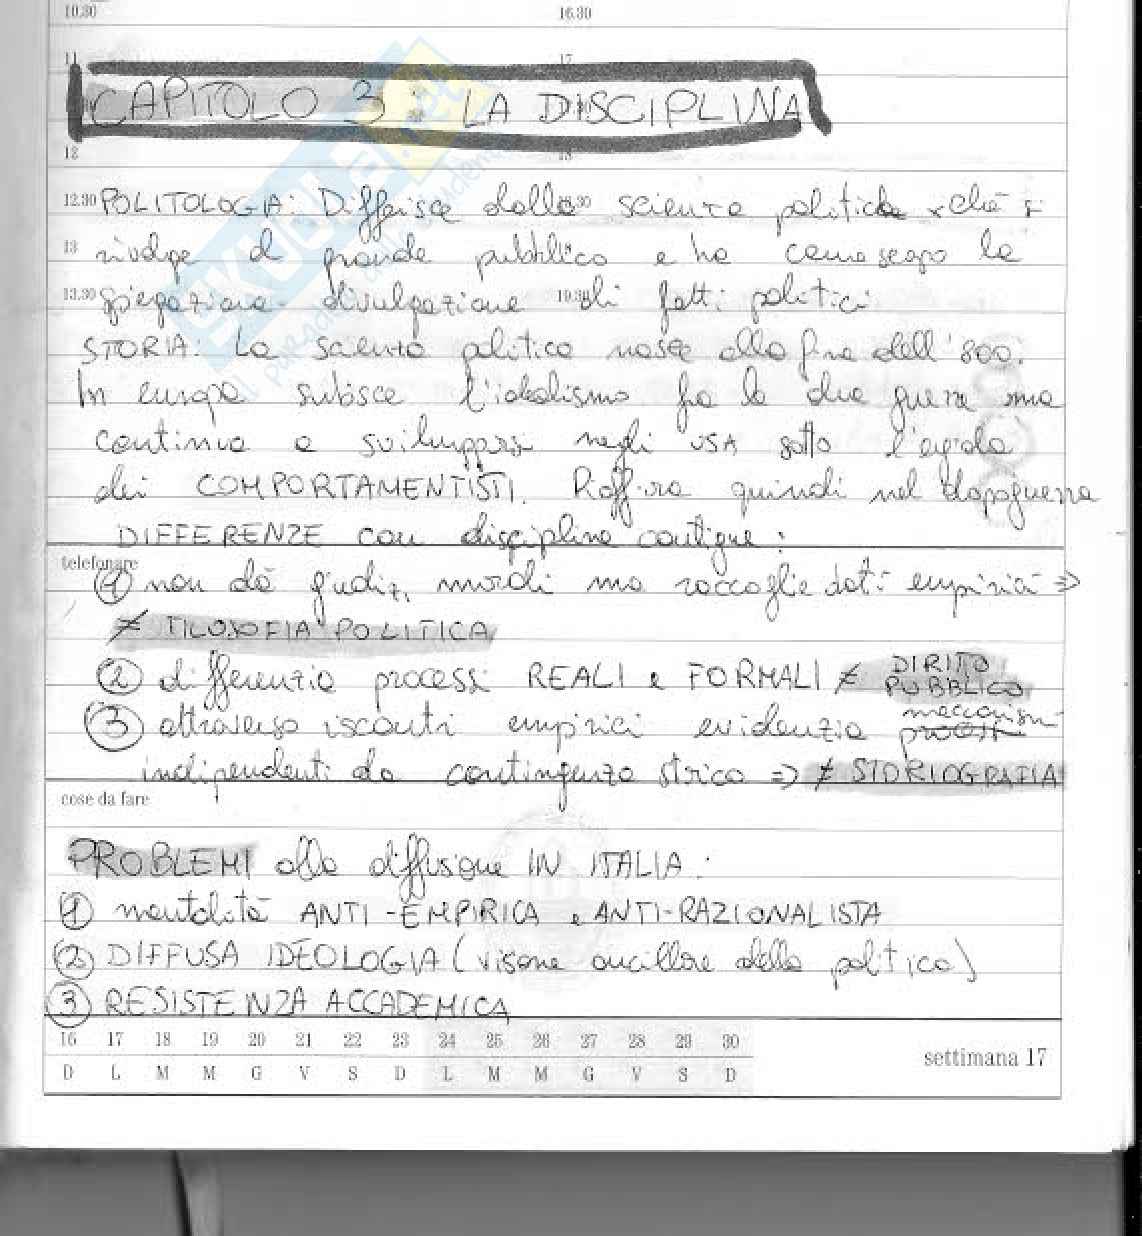 10.30 16.30
11 17
CAPITOLO 3: LA DISCIPLINA
12 18
12.30 POLITOLOGIA: Differisce dalla scienza politica xché si
13 rivolge al grande pubblico e ha come scopo la
13.30 spiegazione-divulgazione 19.30 di fatti politici
STORIA: La scienza politica nasce alla fine dell'800.
In europa subisce l'idealismo fra le due guerre ma
continua a svilupparsi negli USA sotto l'egida
dei COMPORTAMENTISTI. Raffiora quindi nel dopoguerra
DIFFERENZE con discipline contigue:
telefonare
① non dà giudizi morali ma raccoglie dati empirici ⇒
≠ FILOSOFIA POLITICA
② differenzia processi REALI e FORMALI ≠ DIRITO PUBBLICO
③ attraverso iscontri empirici evidenzia meccanismi
indipendenti da contingenza storica ⇒ ≠ STORIOGRAFIA
cose da fare
PROBLEMI alla diffusione IN ITALIA:
① mentalità ANTI-EMPIRICA e ANTI-RAZIONALISTA
② DIFFUSA IDEOLOGIA (visione ancillare della politica)
③ RESISTENZA ACCADEMICA
16 17 18 19 20 21 22 23 24 25 26 27 28 29 30
D L M M G V S D L M M G V S D
settimana 17
skuola.net